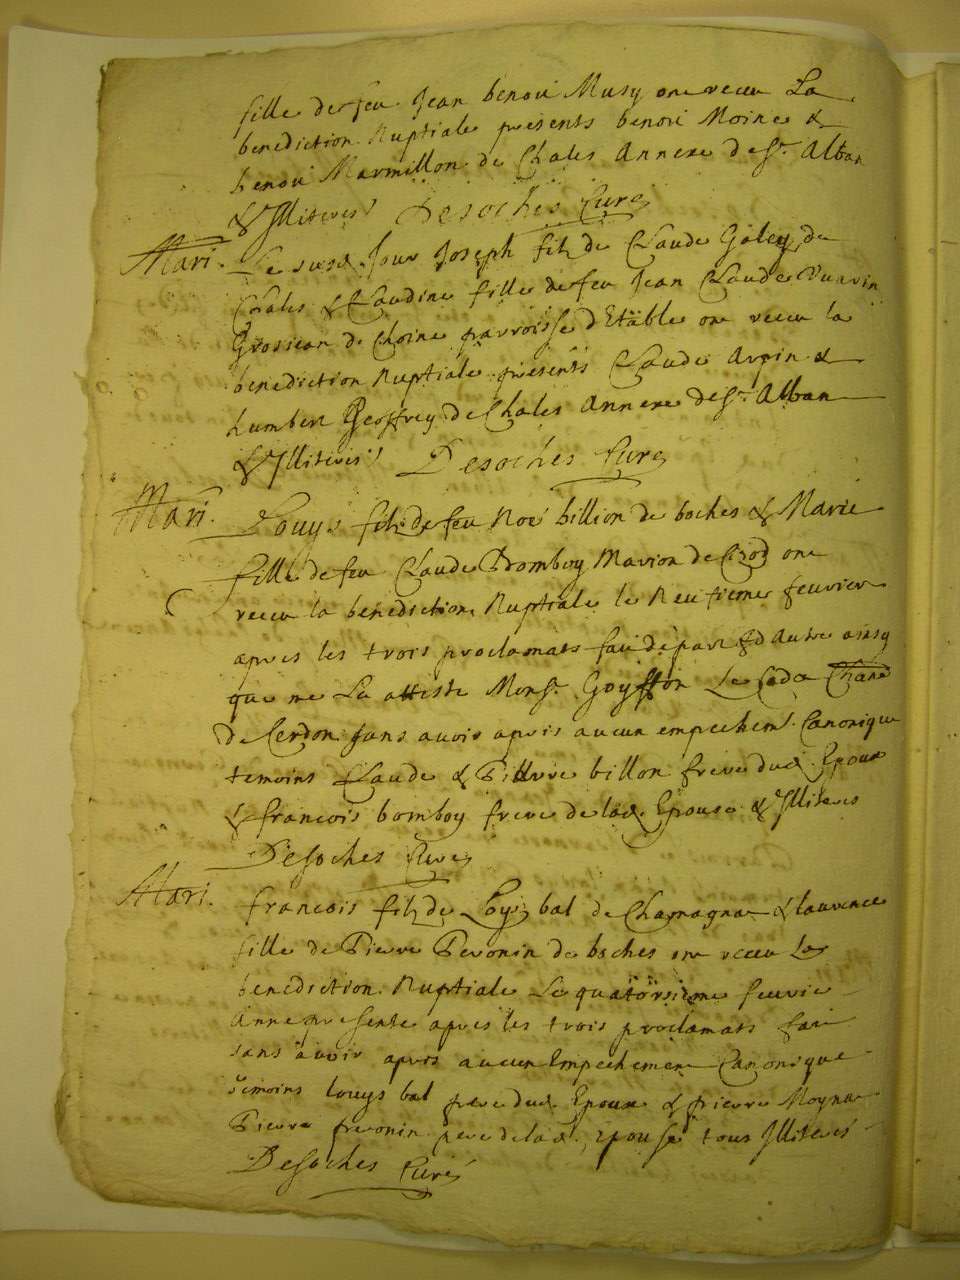 fille de feu Jean benoit Musy ont receu La
benediction Nuptiale presents benoit Moine &
benoit Marmillon de Chales Annexe de St. Alban
& Illiteres Desoches Curé
Mari. Le susd. Jour Joseph filz de Claude Goley de
Chales & Claudine fille de feu Jean Claude
Grosjean de Choine parroisse d'Etable ont receu la
benediction Nuptiale presents Claude Arpin &
humbert Geoffrey de Chales Annexe de St. Alban
& Illiteres Desoches Curé
Mari. Louys filz de feu Noé billion de boches & Marie
fille de feu Claude Bomboy Marion de ont
receu la benediction Nuptiale le Neufieme feuvrier
apres les trois proclamats fait de part & d'Autre ainsy
que me La atteste Monsr. Goyffon Le
de Cerdon sans avoir apris aucun empechemt. Canonique
temoins Claude & Pierre billon frere dud. Epoux
& francois bomboy frere de lad. Epouse & Illiteres
Desoches Curé
Mari. francois filz de Loys bal de Chamagnat & laurence
fille de Pierre Peronin de boches ont receu La
benediction Nuptiale Le quatorsieme feuvrie
Anne presente apres les trois proclamats fait
sans avoir apris aucun Empechement Canonique
temoins Louys bal pere dud. Epoux & pierre Moyna
Pierre peronin pere de lad. Epouse tous Illiteres
Desoches Curé